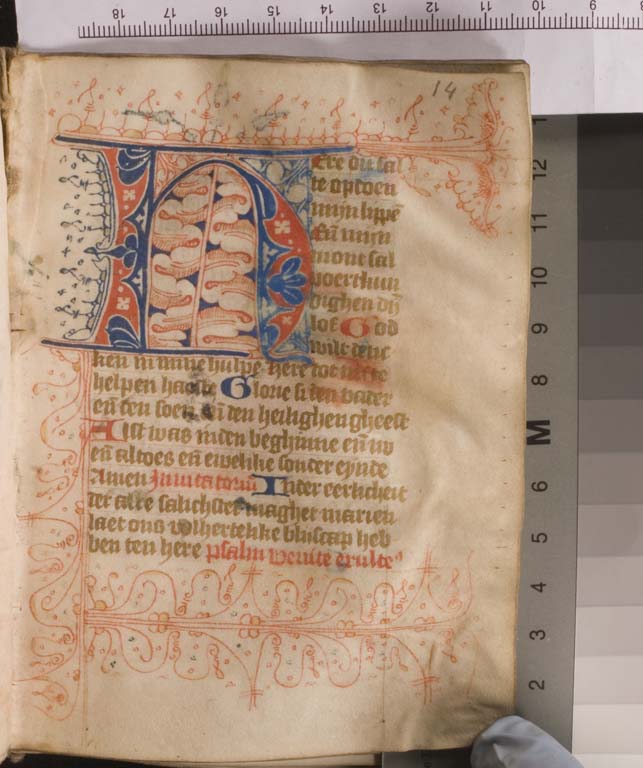 14
HEre du sal
te opdoen
mijn lippē
Eñ mijn
mont sal
voertkun
dighen dij
lof God
wilt denc
ken in mine hulpe here tot mi te
helpen haeste Glorie si den vader
eñ den soen eñ den heilighen gheest
Alst was inden beghinne eñ nv
eñ altoes eñ ewelike sonder eynde
Amen Inuitatoriū Inder eerlicheit
der alre salichster magher marien
laet ons volhertelike bliscap heb
ben den here psalm venite exulte
18 17 16 15 14 13 12 11 10 9 8
12
11
10
9
8
M
6
5
4
3
2